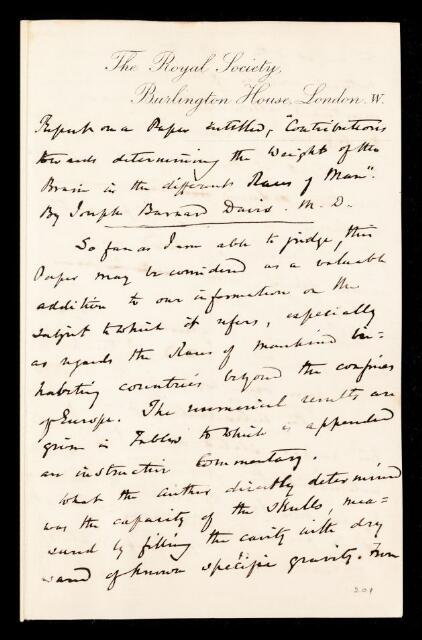 The Royal Society,
Burlington House, London. W.
Report on a Paper entitled, "Contributions
towards determining the Weight of the
Brain in the different Races of Man".
By Joseph Barnard Davis. M. D.
So far as I am able to judge, this
Paper may be considered as a valuable
addition to our information on the
subject to which it refers, especially
as regards the Races of mankind in=
habiting countries beyond the confines
of Europe. The numerical results are
given in Tables to which is appended
an instructive commentary.
What the author directly determined
was the capacity of the skulls, mea=
sured by filling the cavity with dry
sand of known specific gravity. From
201